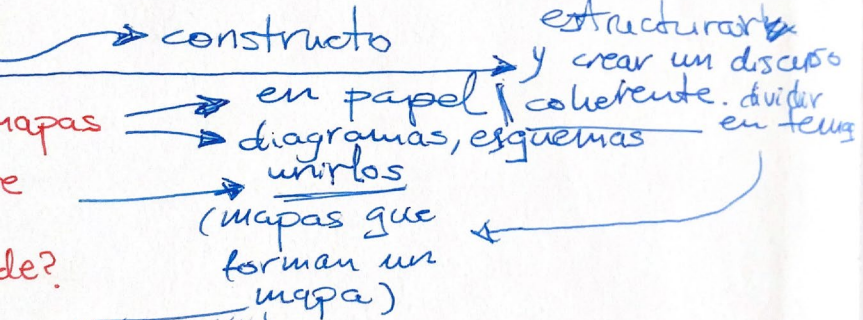 constructo
estructurar
y crear un discurso
coherente. dividir
en temas
en papel
mapas
diagramas, esquemas
e
unirlos
(mapas que
forman un
mapa)
de?